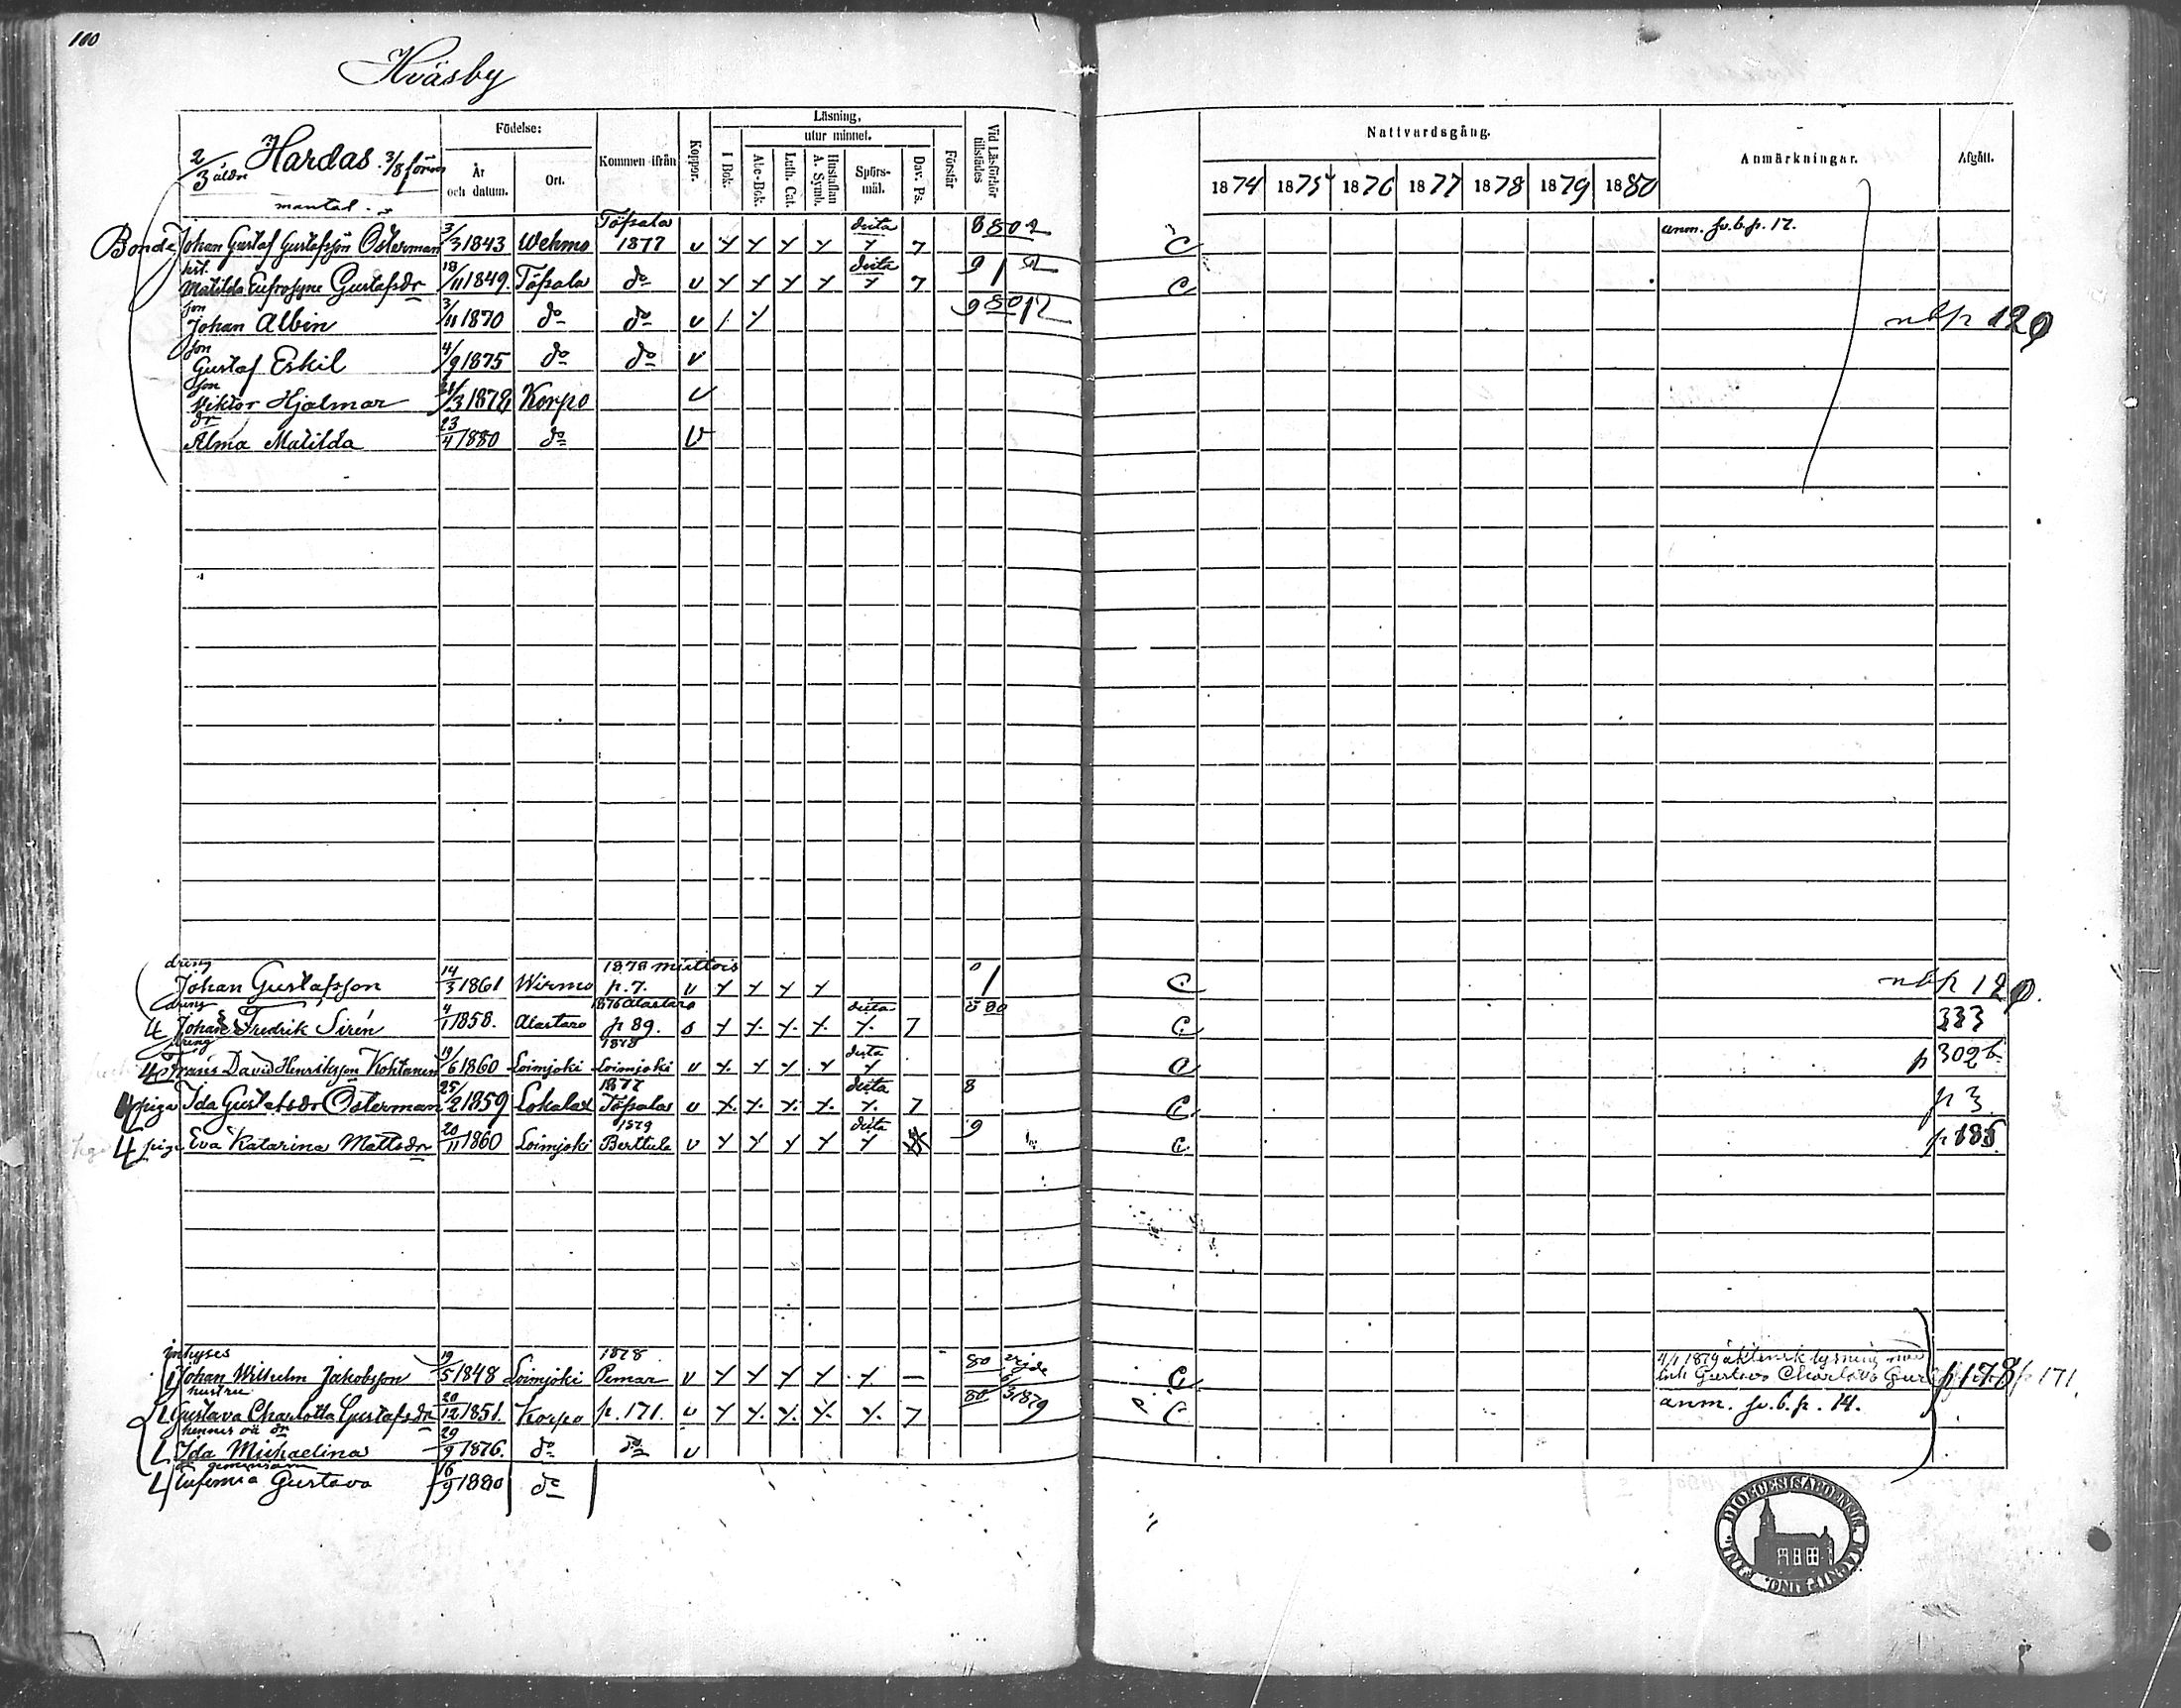 100
Hväsby
2/3 äldre Hardas 3/8 förm
mantal.
Födelse:
År och datum.
Ort.
Kommen ifrån
Koppor.
Läsning,
I Bok.
utur minnet.
Abc-Bok.
Luth. Cat.
Hustaflan A. Symb.
Spörs-mål.
Dav. Ps.
Förstår
Vid Läsförhör tillstädes
Nattvardsgång.
1874 1875 1876 1877 1878 1879 1880
Anmärkningar.
Afgått.
Bonde Johan Gustaf Gustafsson Österman 3/3 1843 Wehmo Töfsala 1877 v dita 8 80 2 C anm. sv.b.p. 17.
hst. Matilda Eufrosyne Gustafsdr 18/11 1849. Töfsala do v dita 9 C
son Johan Albin 3/11 1870 do do v 9 80 12 nbp 120
son Gustaf Eskil 4/9 1875 do do v
son Viktor Hjalmar 3 1878 Korpo v
dr Alma Matilda 23/4 1880 do v
dräng Johan Gustafsson 14/3 1861 Wirmo 1878 p. 7. v C nbp 120
dräng 4 Johan Fredrik Sirén 4/1 1858. Alastaro 1876 Alastaro p 89. s dita 7 8 80 C 333
dräng 4 Frans David Henriksson Kohtanen 19/6 1860 Loimjoki 1878 Loimjoki v dita C p 302 b.
4 piga Ida Gustafsdr Österman 25/2 1859 Lokalax 1877 Töfsala v dita 7 8 C p 3.
4 piga Eva Katarina Mattsdr 20/11 1860 Loimjoki 1879 Berttula v dita 9 C p 185.
inhyses Johan Wilhelm Jakobsson 19/5 1848 Loimjoki 1878 Pemar v 80 C 4/1 1879 äktensk. lysning med inh Gustava Charlotta Gus p 178 p 171.
hustru Gustava Charlotta Gustafsdr 20/12 1851. Korpo p. 171. v 7 80 3 1879 C anm. sv.b.p. 14.
hennes oä dr Ida Michaelina 29/9 1876. do do v
gemensam 4 Eufemia Gustava 16/9 1880 do